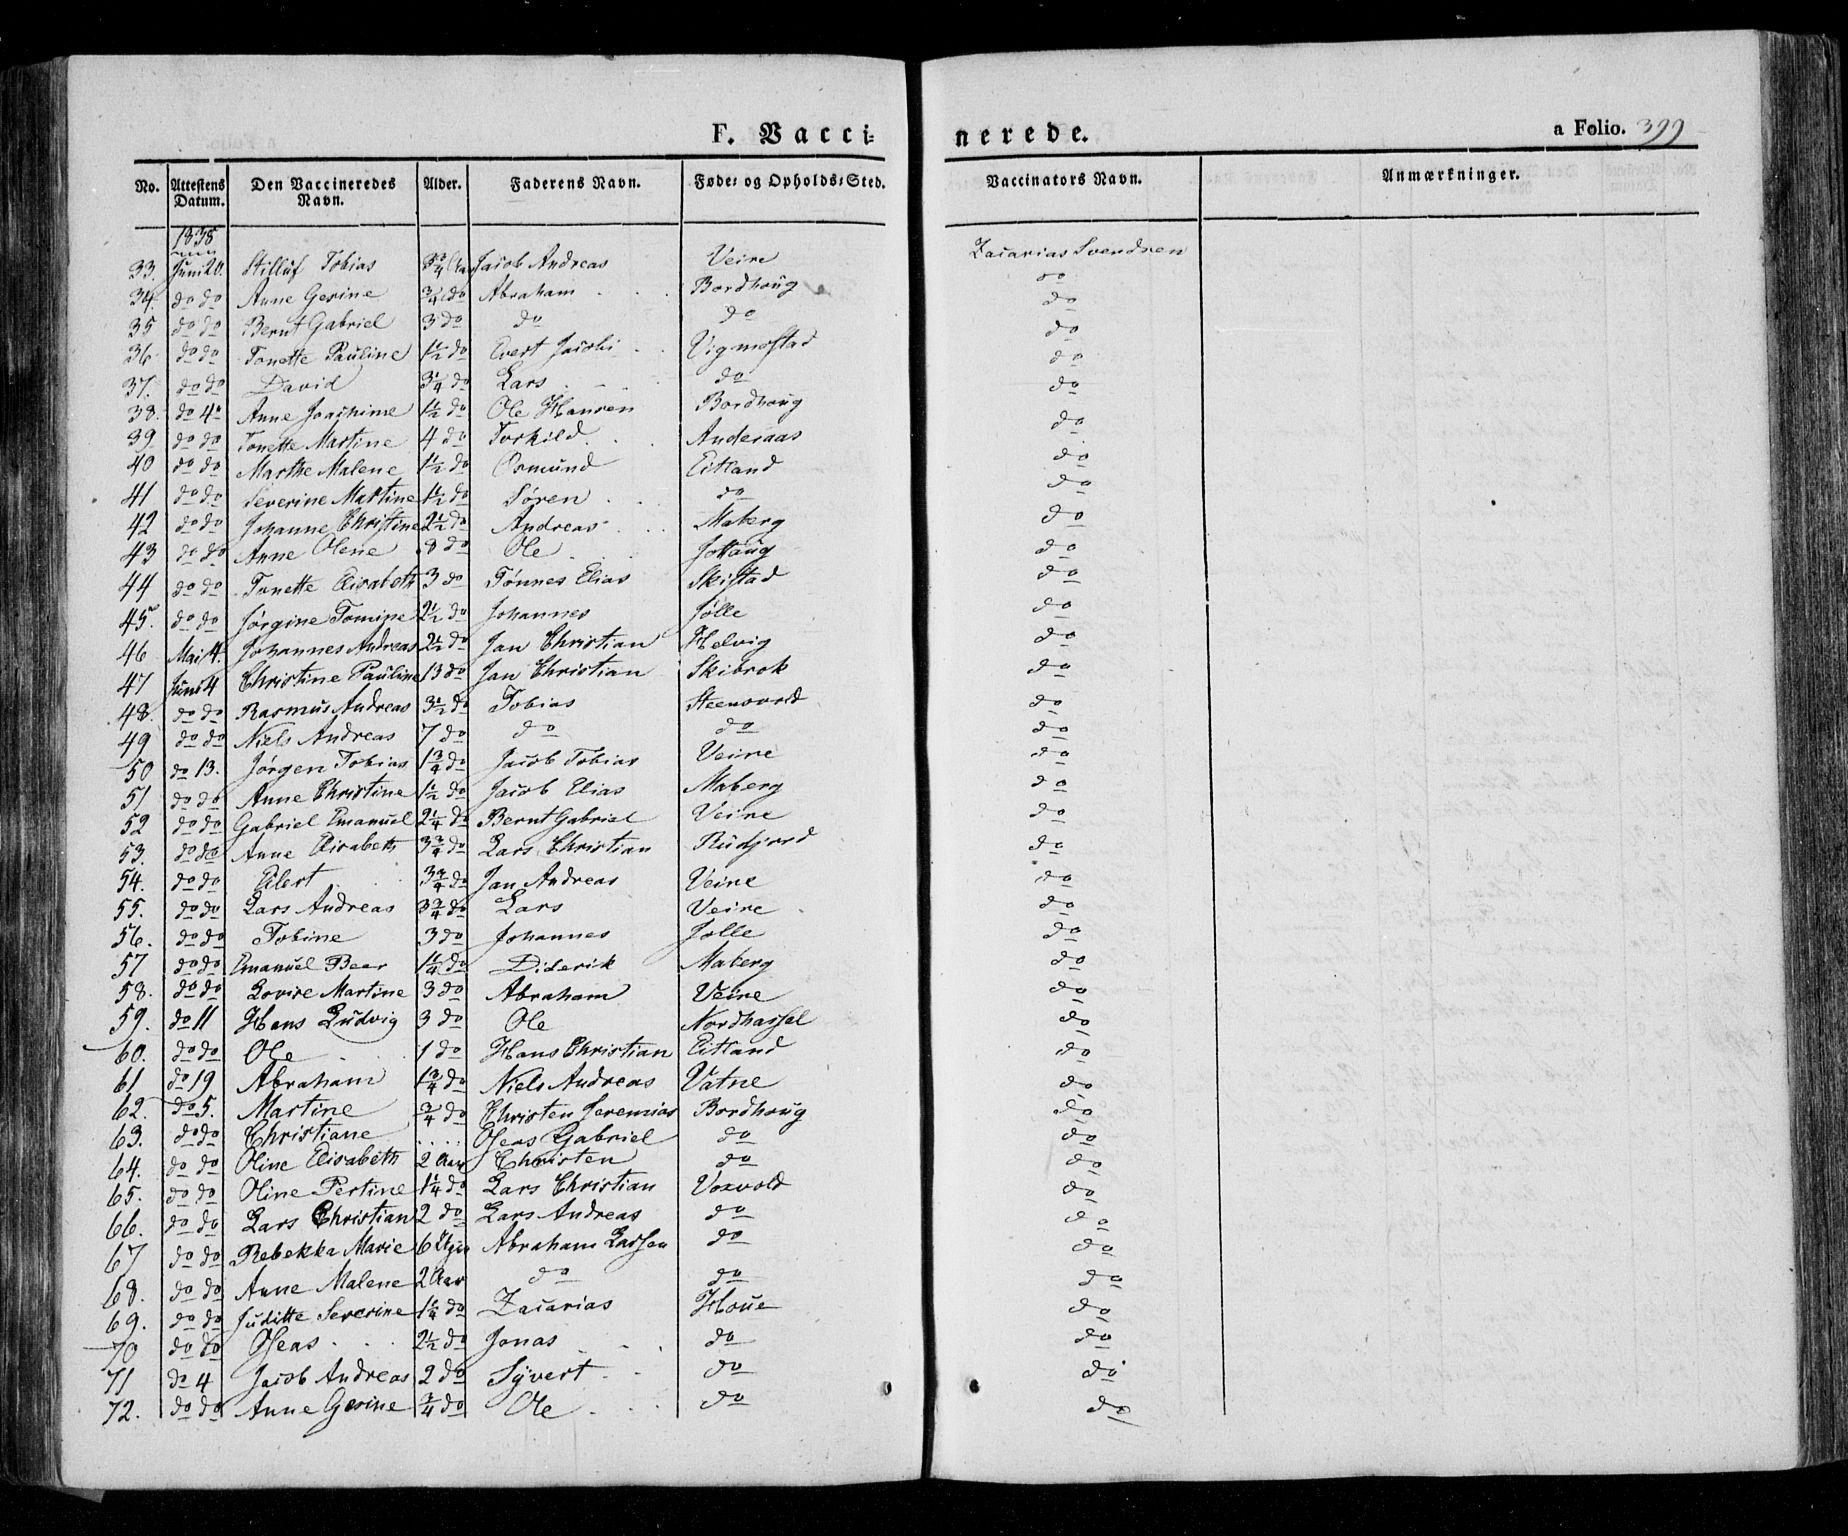 F. Vacci- nerede. a Folio. 399
No. Attestens Datum. Den Vaccineredes Navn. Alder. Faderens Navn. Føde- og Opholds-Sted. Vaccinators Navn. Anmærkninger.
1838
33. Juni 20. Jacob Andreas Veire Zacarias Svendsen
34. do do Anne Gerine 3/4 do Abraham Bordhoug do
35 do do Bernt Gabriel 3 do do do do
36 do do Tonette Pauline 1 1/2 do Evert Jacobi Vigmostad do
37. do do David 3 1/4 do Lars do do
38. do 4 Anne Joachime 1 1/2 do Ole Hansen Bordhoug do
39 do do Tonette Martine 4 do Torkild Anderaas do
40 do do Marthe Malene 1 1/2 do Osmund Eitland do
41 do do Severine Martine 1 1/2 do Søren do do
42 do do Johanne Christine 2 1/2 do Andreas Maberg do
43 do do Anne Olene 8 do Ole do
44 do do Tonette Elisabeth 3 do Tønnes Elias Skistad do
45. do do Jørgine Tomine 2 1/2 do Johannes Jølle do
46 Mai 4. Johannes Andreas 2 1/2 do Jan Christian Helvig do
47 Juni 4 Christine Pauline 13 do Jan Christian Skibrok do
48. do do Rasmus Andreas 3 1/2 do Tobias Steensvord do
49 do do Niels Andreas 7 do do do do
50 do 13. Jørgen Tobias 1 3/4 do Jacob Tobias Veire do
51 do do Anne Christine 1 1/2 do Jacob Elias Maberg do
52 do do Gabriel Emanuel 2 1/4 do Bernt Gabriel Veire do
53. do do Anne Elisabeth 3 3/4 do Lars Christian Rudjord do
54. do do Eilert 3 3/4 do Jan Andreas Veire do
55. do do Lars Andreas 3 3/4 do Lars Veire do
56. do do Tobine 3 do Johannes Jolle do
57 do do Emanuel Beer 1 1/4 do Diderik Maberg do
58. do do Lovise Martine 3 do Abraham Veire do
59. do 11 Hans Ludvig 3 do Ole Nordhassel do
60. do do Ole 1 do Hans Christian Eitland do
61 do 19 Abraham 1 3/4 do Niels Andreas Vatne do
62. do 5. Martine 3/4 do Christen Jeremias Bordhoug do
63. do do Christiane Oseas Gabriel do do
64. do do Oline Elisabeth 2 Aar Christen do do
65. do do Oline Pertine 1 1/4 do Lars Christian Voxvold do
66. do do Lars Christian 2 do Lars Andreas do do
67 do do Rebekka Marie 6 Abraham Larssen do do
68. do do Anne Malene 2 Aar do do do
69. do do Juditte Severine 1 1/4 do Zacarias Houe do
70 do do Oseas 2 1/2 do Jonas do do
71 do 4 Jacob Andreas 2 do Syvert do do
72. do do Anne Gerine 3/4 do Ole do do